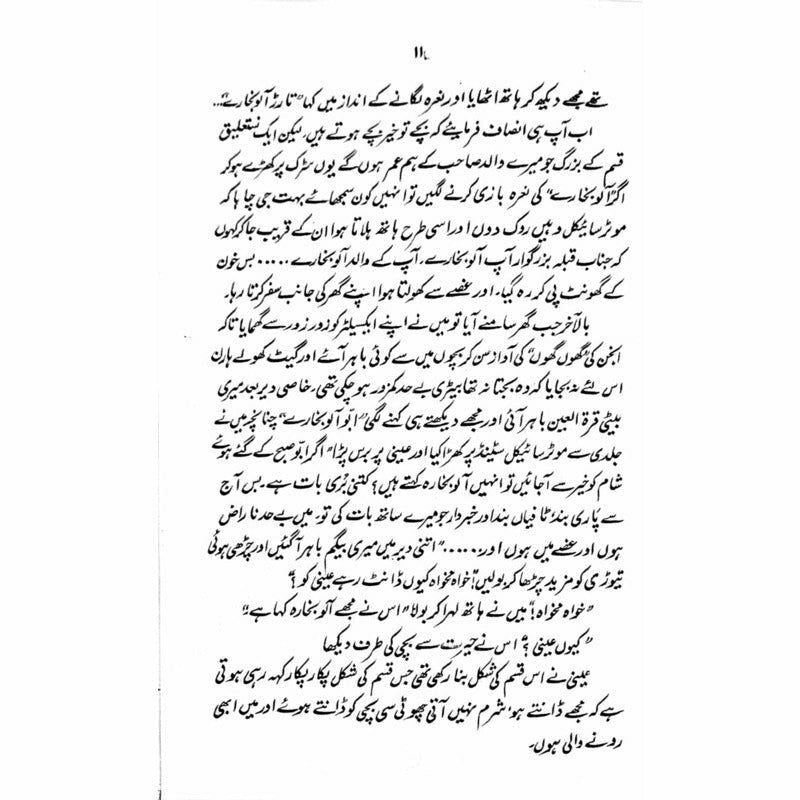 ۱۱
تھے مجھے دیکھ کر ہاتھ اٹھایا اور نعرہ لگانے کے انداز میں کہا "تارڑ آلو بخارے"...
اب آپ ہی انصاف فرمائیے کہ بچے تو خیر بچے ہوتے ہیں۔ لیکن ایک نستعلیق
قسم کے بزرگ جو میرے والد صاحب کے ہم عمر ہوں گے یوں سڑک پر کھڑے ہو کر
اگر "آلو بخارے" کی نعرہ بازی کرنے لگیں تو انہیں کون سمجھائے بہت جی چاہا کہ
موٹر سائیکل وہیں روک دوں اور اسی طرح ہاتھ ہلاتا ہوا ان کے قریب جا کر کہوں
کہ جناب قبلہ بزرگوار آپ آلو بخارے۔ آپ کے والد آلو بخارے ..... بس خون
کے گھونٹ پی کر رہ گیا۔ اور غصے سے کھولتا ہوا اپنے گھر کی جانب سفر کرتا رہا۔
بالآخر جب گھر سامنے آیا تو میں نے اپنے ایکسیلٹر کو زور زور سے گھمایا تاکہ
انجن کی "گھوں گھوں" کی آواز سن کر بچوں میں سے کوئی باہر آئے اور گیٹ کھولے ہارن
اس لئے نہ بجایا کہ وہ بجتا نہ تھا بیٹری بے حد کمزور ہو چکی تھی۔ خاصی دیر بعد میری
بیٹی قرۃ العین باہر آئی اور مجھے دیکھتے ہی کہنے لگی "ابو آلو بخارے" چنانچہ میں نے
جلدی سے موٹر سائیکل سٹینڈ پر کھڑا کیا اور عینی پر برس پڑا "اگر ابو صبح کے گئے ہوئے
شام کو خیر سے آجائیں تو انہیں آلو بخارہ کہتے ہیں؟ کتنی بُری بات ہے۔ بس آج
سے پاری بند، ٹافیاں بند اور خبردار جو میرے ساتھ بات کی تو۔ میں بے حد ناراض
ہوں اور غصے میں ہوں اور ....." اتنی دیر میں میری بیگم باہر آگئیں اور چڑھی ہوئی
تیوڑی کو مزید چڑھا کر بولیں "خواہ مخواہ کیوں ڈانٹ رہے عینی کو ؟"
"خواہ مخواہ!" میں نے ہاتھ لہرا کر بولا "اس نے مجھے آلو بخارہ کہا ہے"
"کیوں عینی ؟" اس نے حیرت سے بچی کی طرف دیکھا
عینی نے اس قسم کی شکل بنا رکھی تھی جس قسم کی شکل پکار پکار کہہ رہی ہوتی
ہے کہ مجھے ڈانٹتے ہو، شرم نہیں آتی چھوٹی سی بچی کو ڈانٹتے ہوئے اور میں ابھی
رونے والی ہوں۔